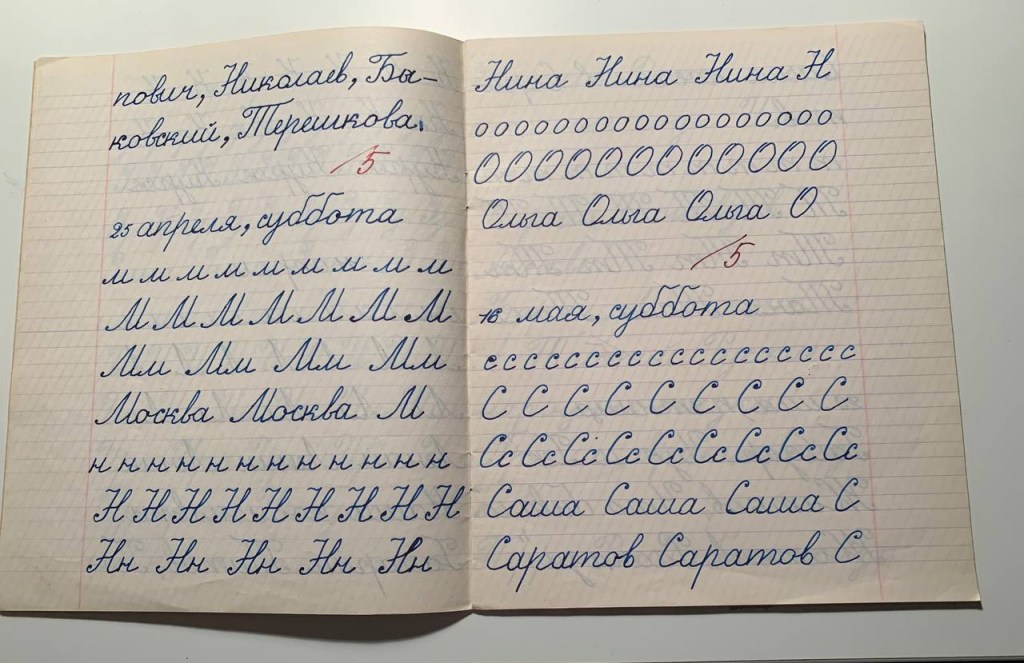 пович, Николаев, Бы-
ковский, Терешкова.
5
25 апреля, суббота
м м м м м м м м м
М М М М М М М
Мм Мм Мм Мм
Москва Москва М
н н н н н н н н н н н н н
Н Н Н Н Н Н Н Н Н
Нн Нн Нн Нн Нн
Нина Нина Нина Н
о о о о о о о о о о о о о о о о о о
О О О О О О О О О О О О О
Ольга Ольга Ольга О
5
16 мая, суббота
с с с с с с с с с с с с с с с с с с с
С С С С С С С С С
Сс Сс Сс Сс Сс Сс Сс Сс Сс
Саша Саша Саша С
Саратов Саратов С